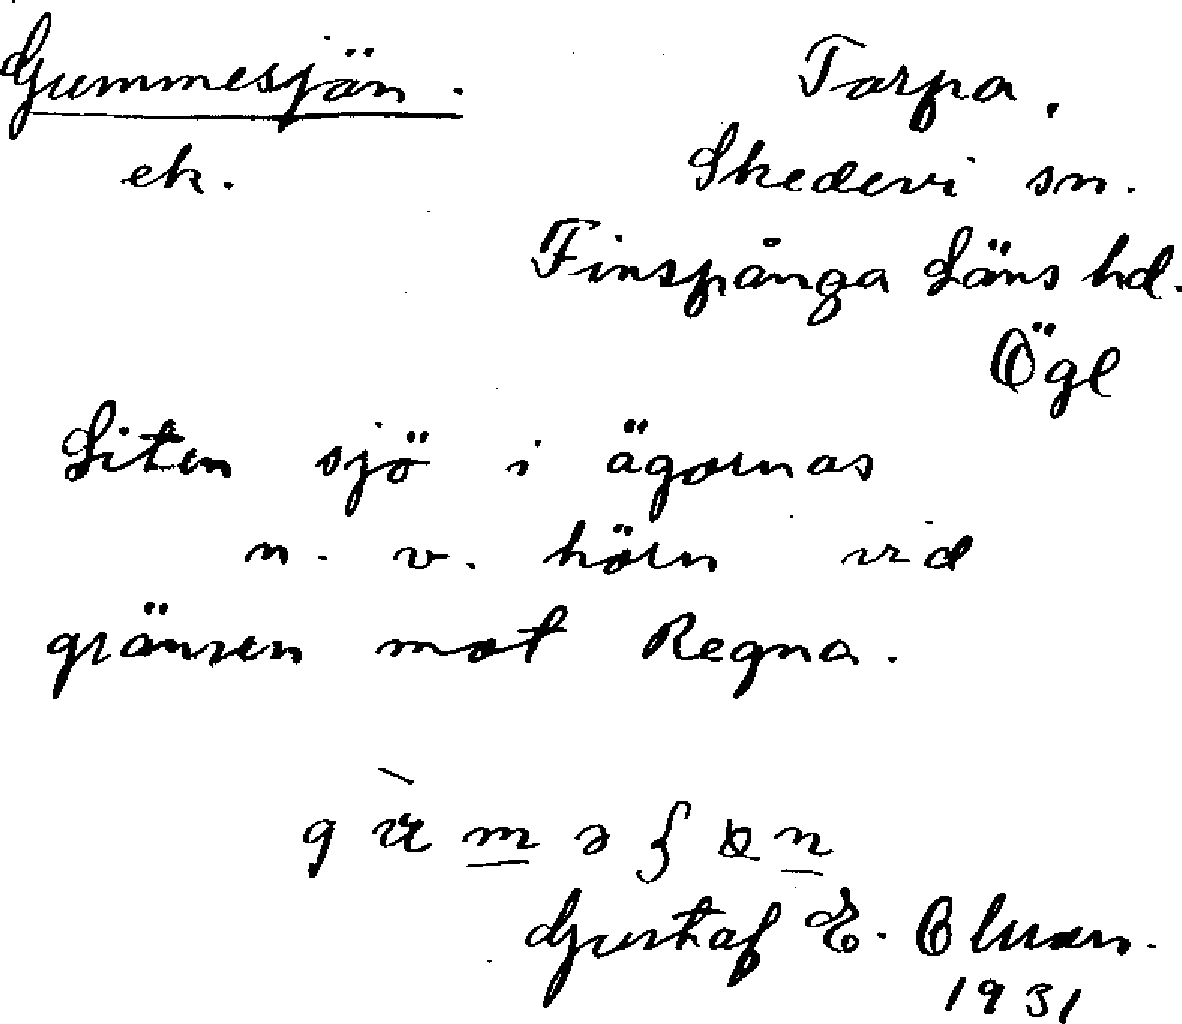 Gummesjän. Tarpa.
ek. Skedevi sn.
Finspånga Läns hd.
Ögl
Liten sjö i ägornas
n. v. hörn vid
gränsen mot Regna.
Gustaf E.
1931